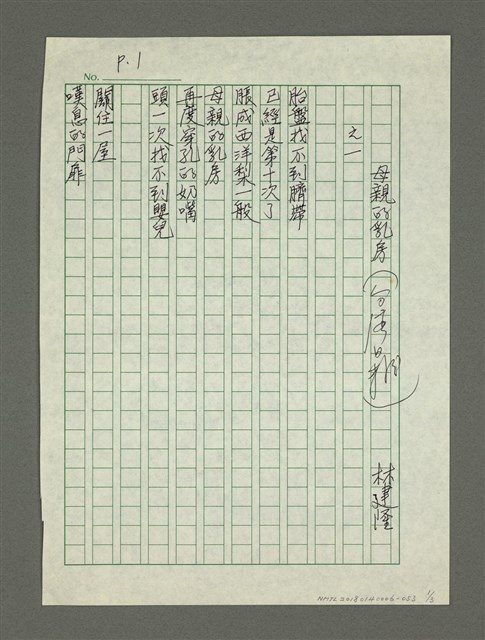 No. P.1
母親的乳房
林建隆
之一
胎盤找不到臍帶
已經是第十次了
脹成西洋梨一般
母親的乳房
再度穿孔的奶嘴
頭一次找不到嬰兒
關住一屋
嘆息的門扉
NMTL20180140006-053 1/3